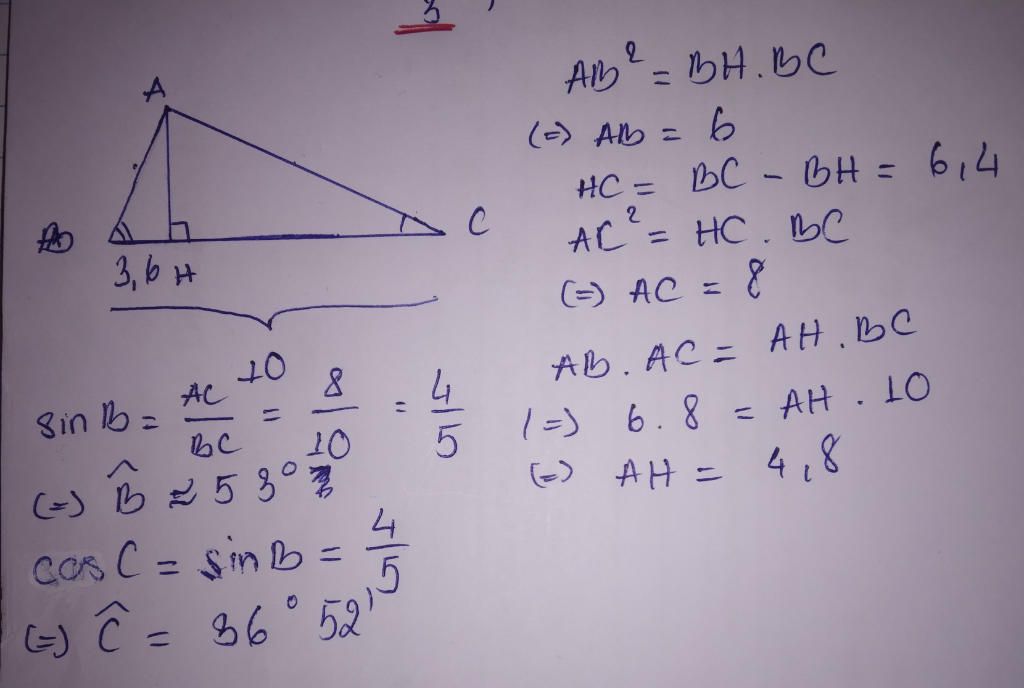 3
A
B
C
3,6 H
10
sin B = AC/BC = 8/10 = 4/5
(=) B̂ ≈ 53°
cos C = sin B = 4/5
(=) Ĉ = 36° 52'
AB² = BH . BC
(=) AB = 6
HC = BC - BH = 6,4
AC² = HC . BC
(=) AC = 8
AB . AC = AH . BC
(=) 6 . 8 = AH . 10
(=) AH = 4,8